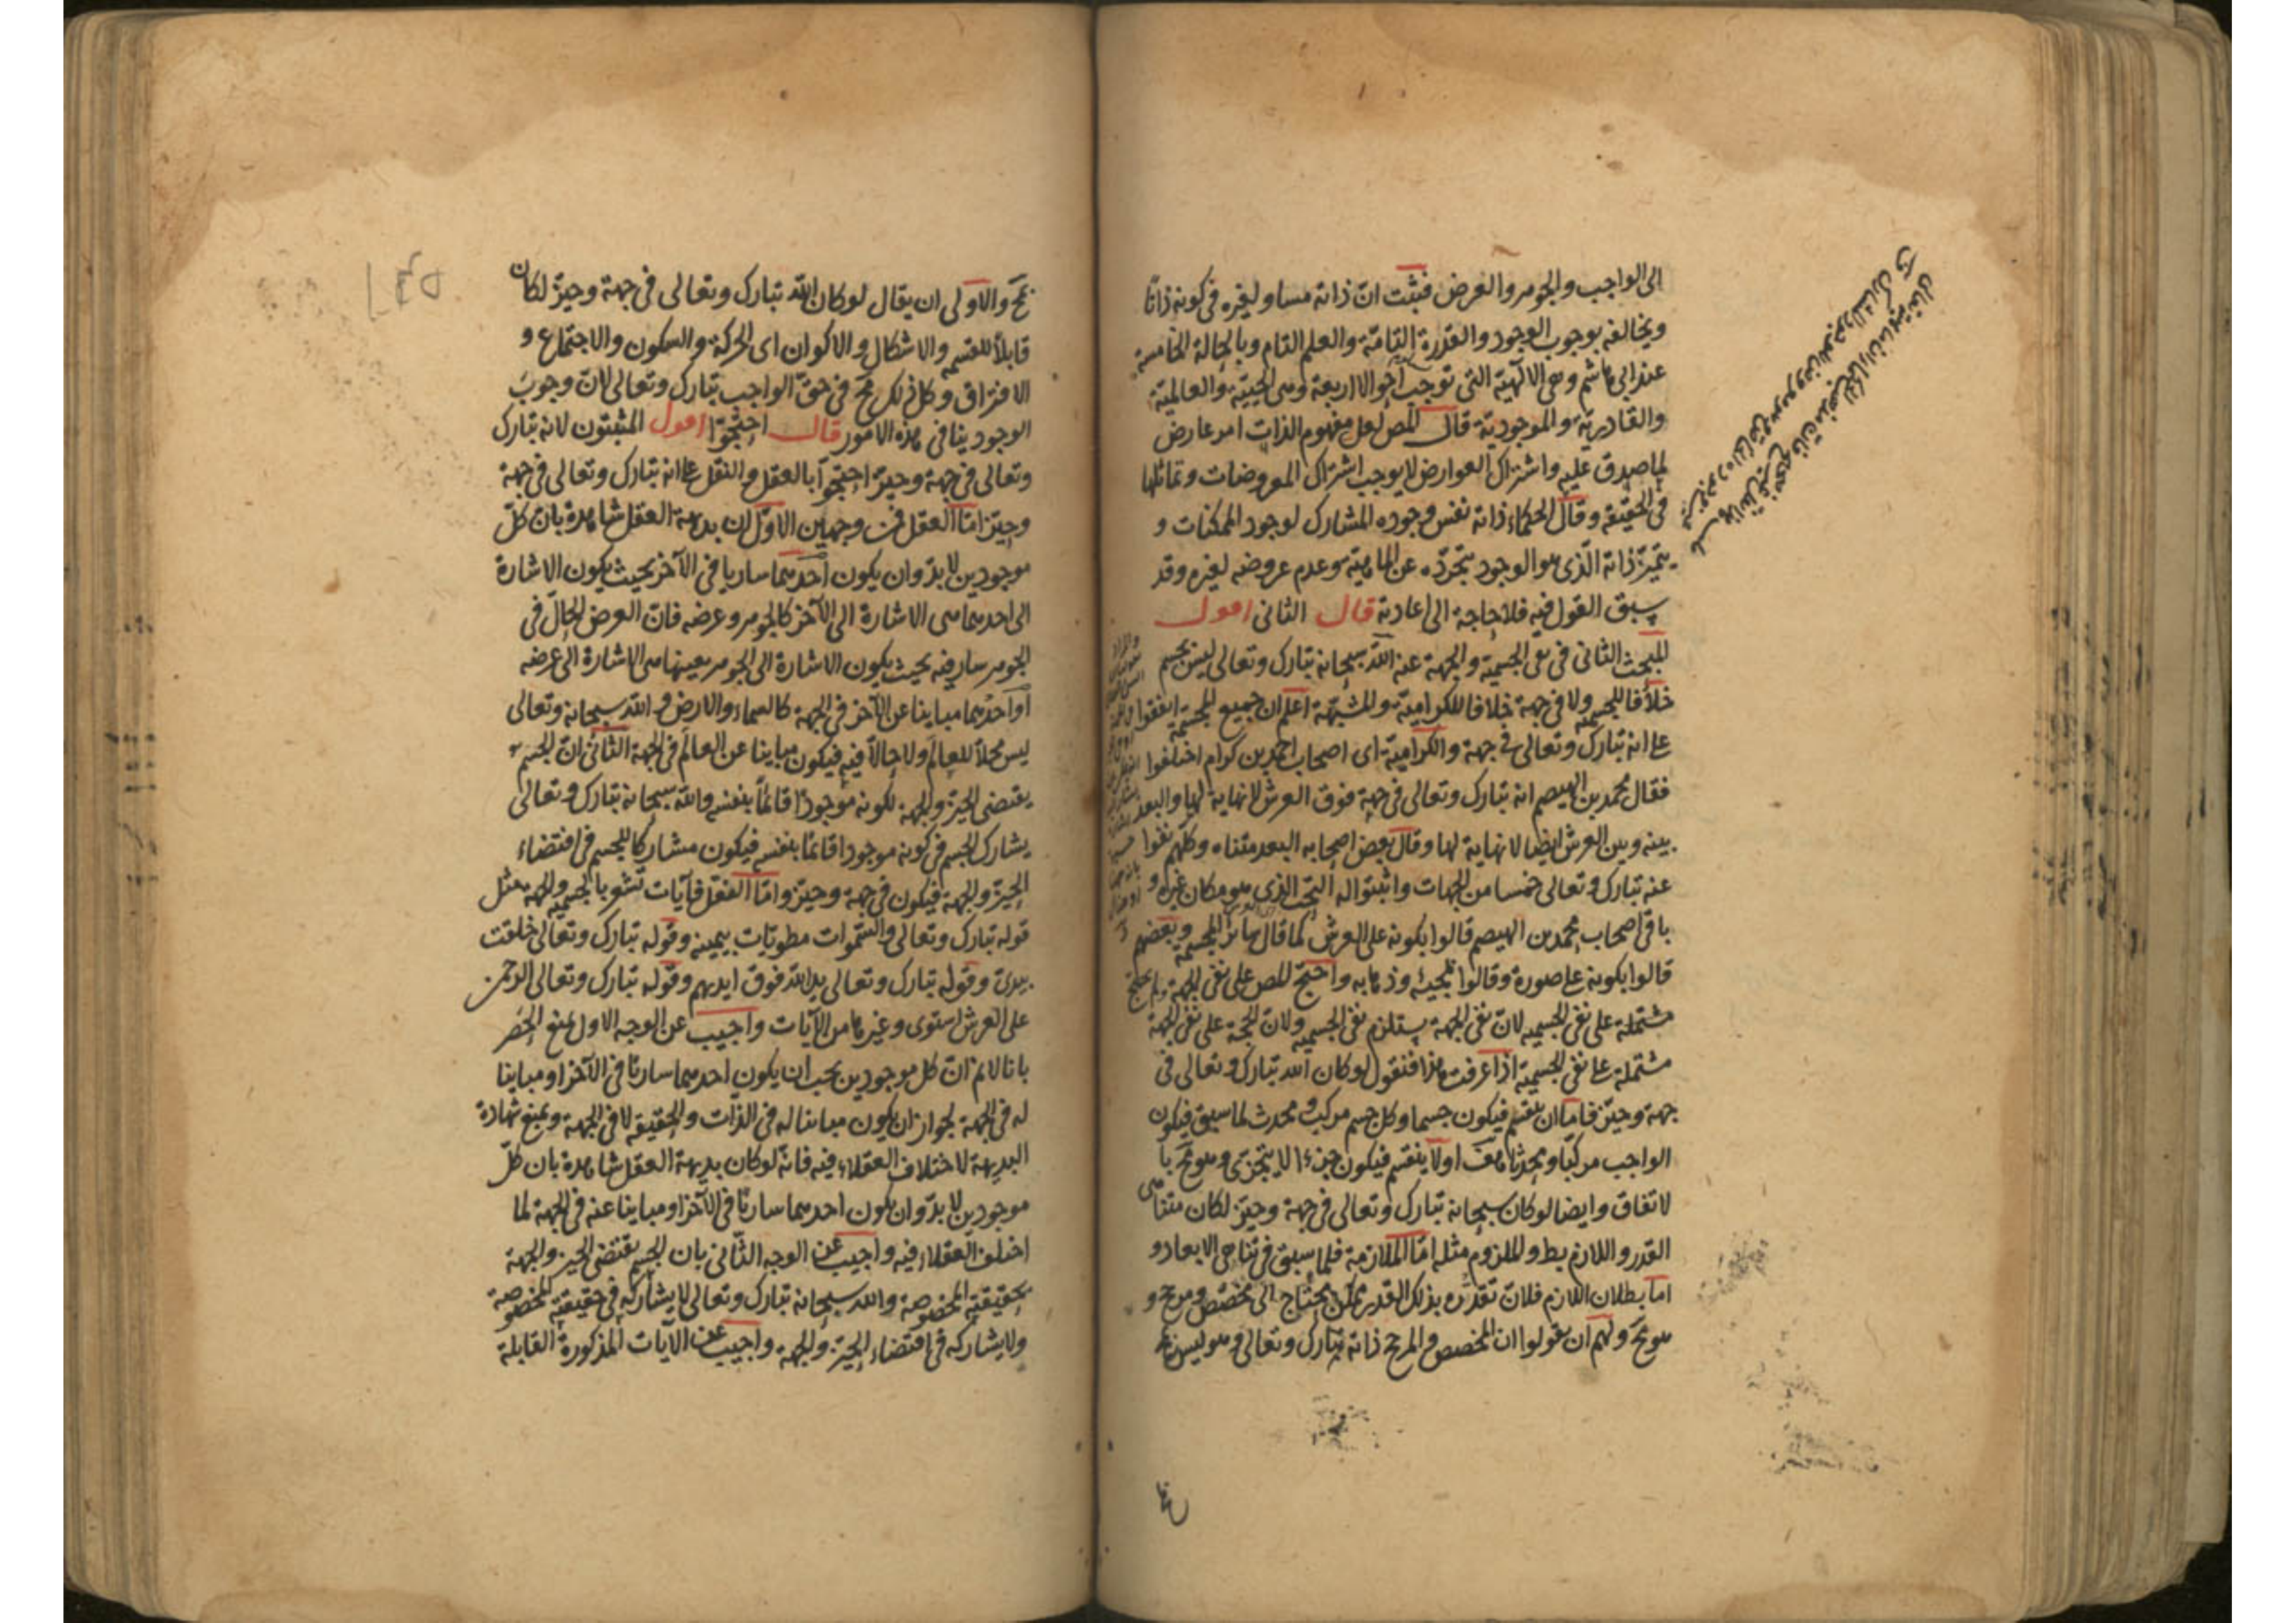 الى الواجب والجوهر والعرض فثبت ان ذاته مساو لغيره فى كونه ذاتا
ويخالفه بوجوب الوجود والقدرة التامة والعلم التام وبالحالة الخامسة
عند ابى هاشم وهى الالهية التى توجب احوالا اربعة وهى الحيية والعالمية
والقادرية والموجودية قال المص لعل مفهوم الذات امر عارض
لما صدق عليه واشتراك العوارض لا يوجب اشتراك المعروضات وتماثلها
فى الحقيقة وقال الحكماء ذاته نفس وجوده المشارك لوجود الممكنات و
يتميز ذاته الذى هو الوجود بتجرده عن الماهية وعدم عروضه لغيره وقد
سبق القول فيه فلا حاجة الى اعادته قال الثانى اقول
المبحث الثانى فى نفى الجسمية والجهة عنه الله سبحانه تبارك وتعالى ليس بجسم
خلافا للمجسمة ولا فى جهة خلافا للكرامية والمشبهة اعلم ان جميع المجسمة اتفقوا
على انه تبارك وتعالى فى جهة والكرامية اى اصحاب احمد بن كرام اختلفوا
فقال محمد بن الهيصم انه تبارك وتعالى فى جهة فوق العرش لا نهاية لها والبعد
بينه وبين العرش ايضا لا نهاية لها وقال بعض اصحابه البعد متناه وكلهم نفوا
عنه تبارك وتعالى خمسا من الجهات واثبتوا له التحت الذى هو مكان غيره و
باقى اصحاب محمد بن الهيصم قالوا بكونه على العرش كما قال سائر المجسمة وبعضهم
قالوا بكونه على صورة وقالوا بمجيئه وذهابه واحتج المص على نفى الجهة
مشتملة على نفى الجسمية لان نفى الجهة يستلزم نفى الجسمية ولان الحجة على نفى الجهة
مشتملة على نفى الجسمية اذا عرفت هذا فنقول لو كان الله تبارك وتعالى فى
جهة وحيز فاما ان ينقسم فيكون جسما وكل جسم مركب ومحدث لما سبق فيكون
الواجب مركبا ومحدثا هف اولا ينقسم فيكون جزءا لا يتجزى وهو مح با
لاتفاق وايضا لو كان سبحانه تبارك وتعالى فى جهة وحيز لكان متناهى
القدر واللازم بط والملزوم مثله اما الملازمة فلما سبق فى تناهى الابعاد و
اما بطلان اللازم فلان تقدره بذلك القدر ممكن يحتاج الى مخصص ومرجح و
هو مح ولهم ان يقولوا ان المخصص والمرجح ذاته تبارك وتعالى وهو ليس
مح والاولى ان يقال لو كان الله تبارك وتعالى فى جهة وحيز لكان
قابلا للقسمة والاشكال والاكوان اى الحركة والسكون والاجتماع و
الافتراق وكل ذلك مح فى حق الواجب تبارك وتعالى لان وجوب
الوجود ينافى هذه الامور قال احتجوا اقول المثبتون لانه تبارك
وتعالى فى جهة وحيز احتجوا بالعقل والنقل على انه تبارك وتعالى فى جهة
وحيز اما العقل فمن وجهين الاول ان بديهة العقل شاهدة بان كل
موجودين لا بد وان يكون احدهما ساريا فى الآخر بحيث يكون الاشارة
الى احدهما هى الاشارة الى الآخر كالجوهر وعرضه فان العرض الحال فى
الجوهر سار فيه بحيث يكون الاشارة الى الجوهر بعينها هى الاشارة الى عرضه
او احدهما مباينا عن الآخر فى الجهة كالسماء والارض والله سبحانه وتعالى
ليس محلا للعالم ولا حالا فيه فيكون مباينا عن العالم فى الجهة الثانى ان الجسم
يقتضى الحيز والجهة لكونه موجودا قائما بنفسه والله سبحانه تبارك وتعالى
يشارك الجسم فى كونه موجودا قائما بنفسه فيكون مشاركا للجسم فى اقتضاء
الحيز والجهة فيكون فى جهة وحيز واما النقل فآيات تشعر بالجسمية والجهة مثل
قوله تبارك وتعالى والسموات مطويات بيمينه وقوله تبارك وتعالى خلقت
بيدى وقوله تبارك وتعالى يد الله فوق ايديهم وقوله تبارك وتعالى الرحمن
على العرش استوى وغيرها من الآيات واجيب عن الوجه الاول بمنع الحصر
بانا لانم ان كل موجودين يجب ان يكون احدهما ساريا فى الآخر او مباينا
له فى الجهة لجواز ان يكون مباينا له فى الذات والحقيقة لا فى الجهة وبمنع شهادة
البديهة لاختلاف العقلاء فيه فانه لو كان بديهة العقل شاهدة بان كل
موجودين لا بد وان يكون احدهما ساريا فى الآخر او مباينا عنه فى الجهة لما
اختلف العقلاء فيه واجيب عن الوجه الثانى بان الجسم يقتضى الحيز والجهة
بحقيقته المخصوصة والله سبحانه تبارك وتعالى لا يشاركه فى حقيقته المخصوصة
ولا يشاركه فى اقتضاء الحيز والجهة واجيب عن الآيات المذكورة القابلة